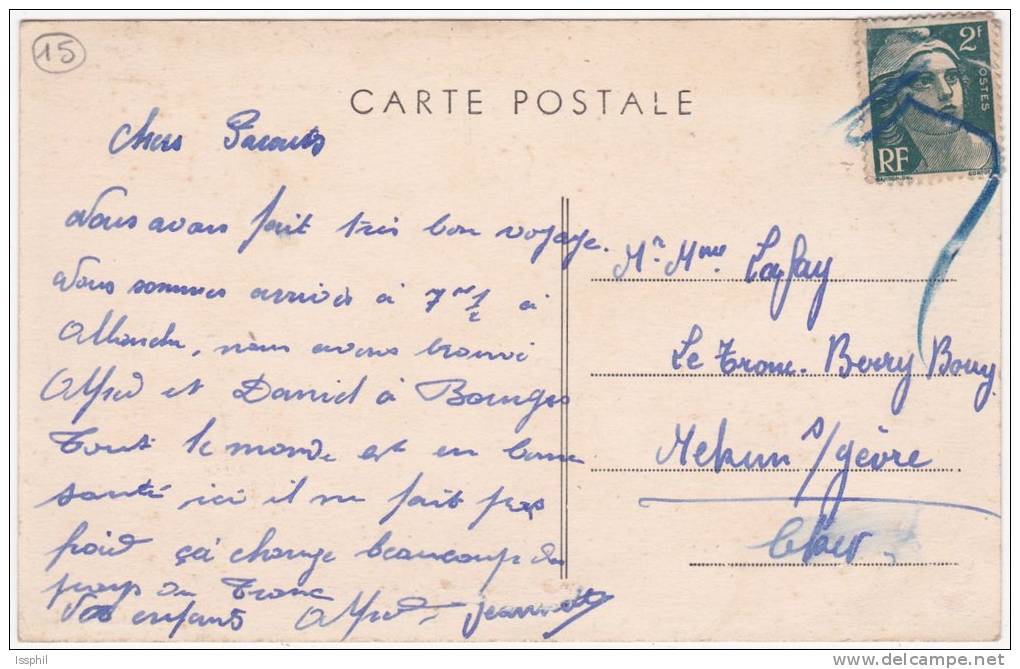 15
CARTE POSTALE
2F
POSTES
RF
Chers Parents
Nous avons fait très bon voyage.
Nous sommes arrivés à 7 1/2 à
nous avons trouvé
Alfred et Daniel à Bourges
Tout le monde est en bonne
santé ici il ne fait pas
froid ça change beaucoup du
pays du Tronc
Vos enfants Alfred - Jeannette
Mr Mme Lafay
Le Tronc - Berry Bouy
Mehun s/ Yèvre
Cher
Issphil
www.delcampe.net